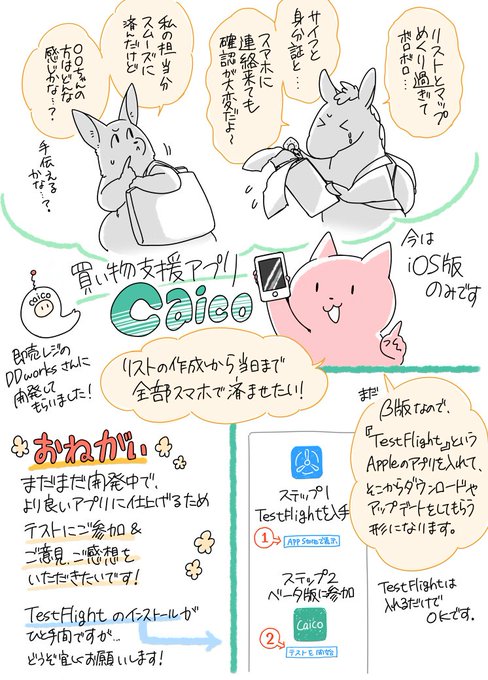 リストとマップ
めくり過ぎて
ボロボロ…
サイフと
身分証と…
スマホに
連絡来ても
確認が大変だよ〜
私の担当分
スムーズに
済んだけど
〇〇ちゃんの
方はどんな
感じかな…?
手伝える
かな…?
今は
iOS版
のみです
買い物支援アプリ
Caico
caico
即売レジの
DDworksさんに
開発して
もらいました!
リストの作成から当日まで
全部スマホで済ませたい!
まだ
β版なので、
『TestFlight』という
Appleのアプリを入れて、
そこからダウンロードや
アップデートをしてもらう
形になります。
おねがい
まだまだ開発中で、
より良いアプリに仕上げるため
テストにご参加&
ご意見、ご感想を
いただきたいです!
TestFlightのインストールが
ひと手間ですが…
どうぞ宜しくお願いします!
ステップ1
TestFlightを入手
1 App Storeで表示
ステップ2
ベータ版に参加
Caico
2 テストを開始
TestFlightは
入れるだけで
OKです。